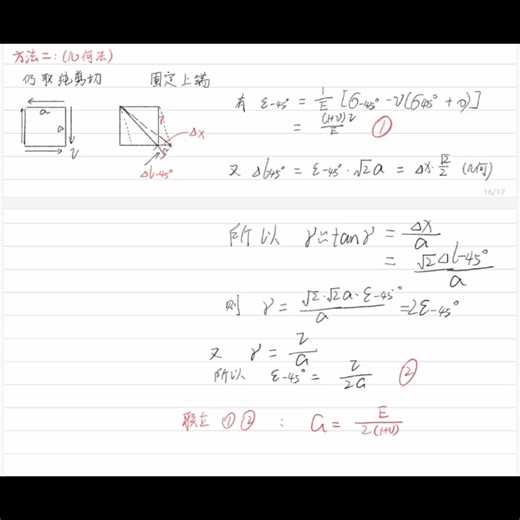 方法二:(几何法)
仍取纯剪切 固定上端
a
a
τ
γ
Δx
45°
Δl-45°
有 ε-45° = 1/E [σ-45° - ν(σ45° + 0)]
= (1+ν)τ/E ①
又 Δl45° = ε-45° · √2a = Δx · √2/2 (几何)
16/17
所以 γ≈tanγ = Δx/a
= √2Δl-45°/a
则 γ = √2·√2a·ε-45°/a = 2ε-45°
又 γ = τ/G
所以 ε-45° = τ/2G ②
联立 ①② : G = E/2(1+ν)